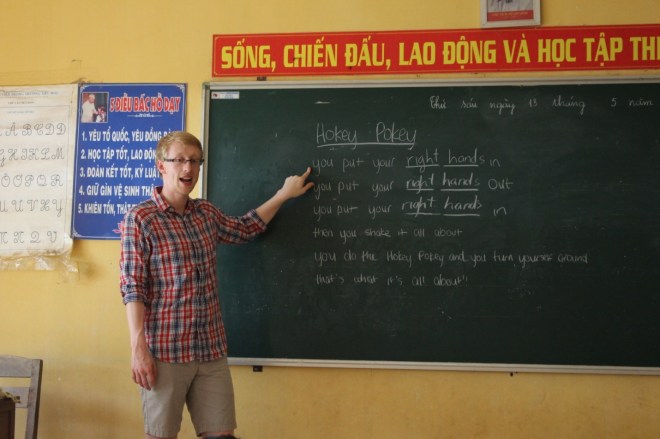 SỐNG, CHIẾN ĐẤU, LAO ĐỘNG VÀ HỌC TẬP
5 ĐIỀU BÁC HỒ DẠY
1. YÊU TỔ QUỐC, YÊU ĐỒNG
2. HỌC TẬP TỐT, LAO
3. ĐOÀN KẾT TỐT, KỶ
4. GIỮ GÌN VỆ SINH
5. KHIÊM TỐN, THẬT
Thứ sáu ngày 13 tháng 5 năm
Hokey Pokey
you put your right hands in
you put your right hands out
you put your right hands in
then you shake it all about
you do the Hokey Pokey and you turn yourself around
that's what it's all about!!